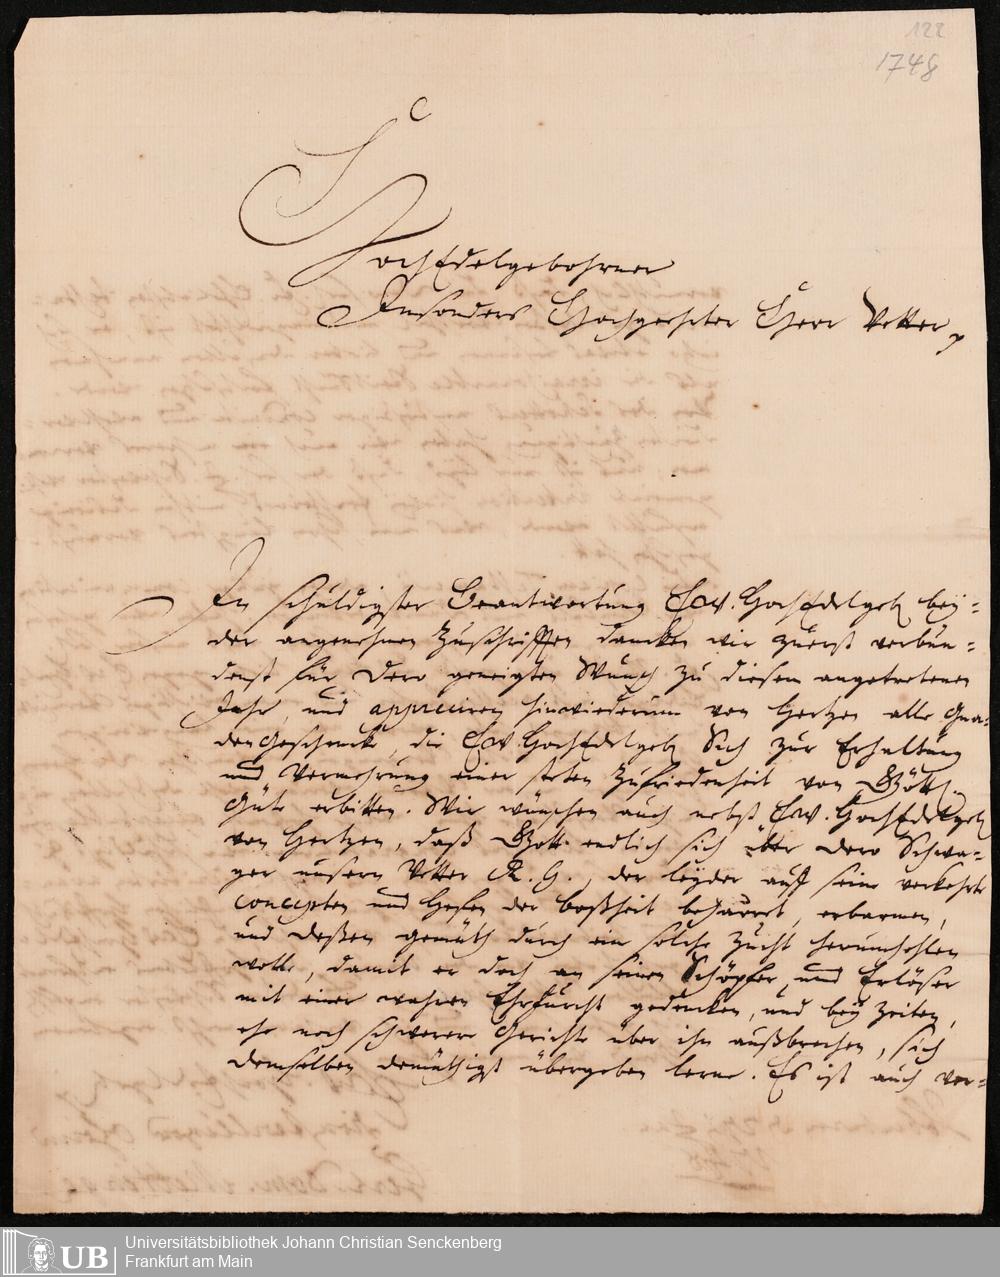 122
1748
HochEdelgebohrner
Insonders Hochgeehrter Herr Vetter
In schuldigster Beantwortung Ew. HochEdelgeb bey=
der angenehmen Zuschrifften dancken wir zuerst verbun=
denst für Dero geneigten Wunsch zu diesem angetretenen
Jahr, und appreciiren hinwiederum von Hertzen alle Gna=
dengeschencke, die Ew. HochEdelgeb Sich zur Erhaltung
und Vermehrung einer steten Zufriedenheit von Göttl.
Güte erbitten. Wir wünschen auch nebst Ew. HochEdelgeb
von Hertzen, daß Gott endlich sich über Dero Schwa=
ger unsern Vetter R. H., der leyder auff seine verkehrte
concepten und Hefen der boßheit beharret, erbarmen,
und deßen gemüth durch eine solche Zucht herumhohlen
wolle, damit er doch an seinen Schöpfer und Erlöser
mit einer wahren Ehrfurcht gedencken, und bey Zeiten,
ehe noch schwerere Gerichte über ihn außbrechen, sich
demselben demüthigst übergeben lerne. Es ist auch ver=
Universitätsbibliothek Johann Christian Senckenberg
Frankfurt am Main
UB